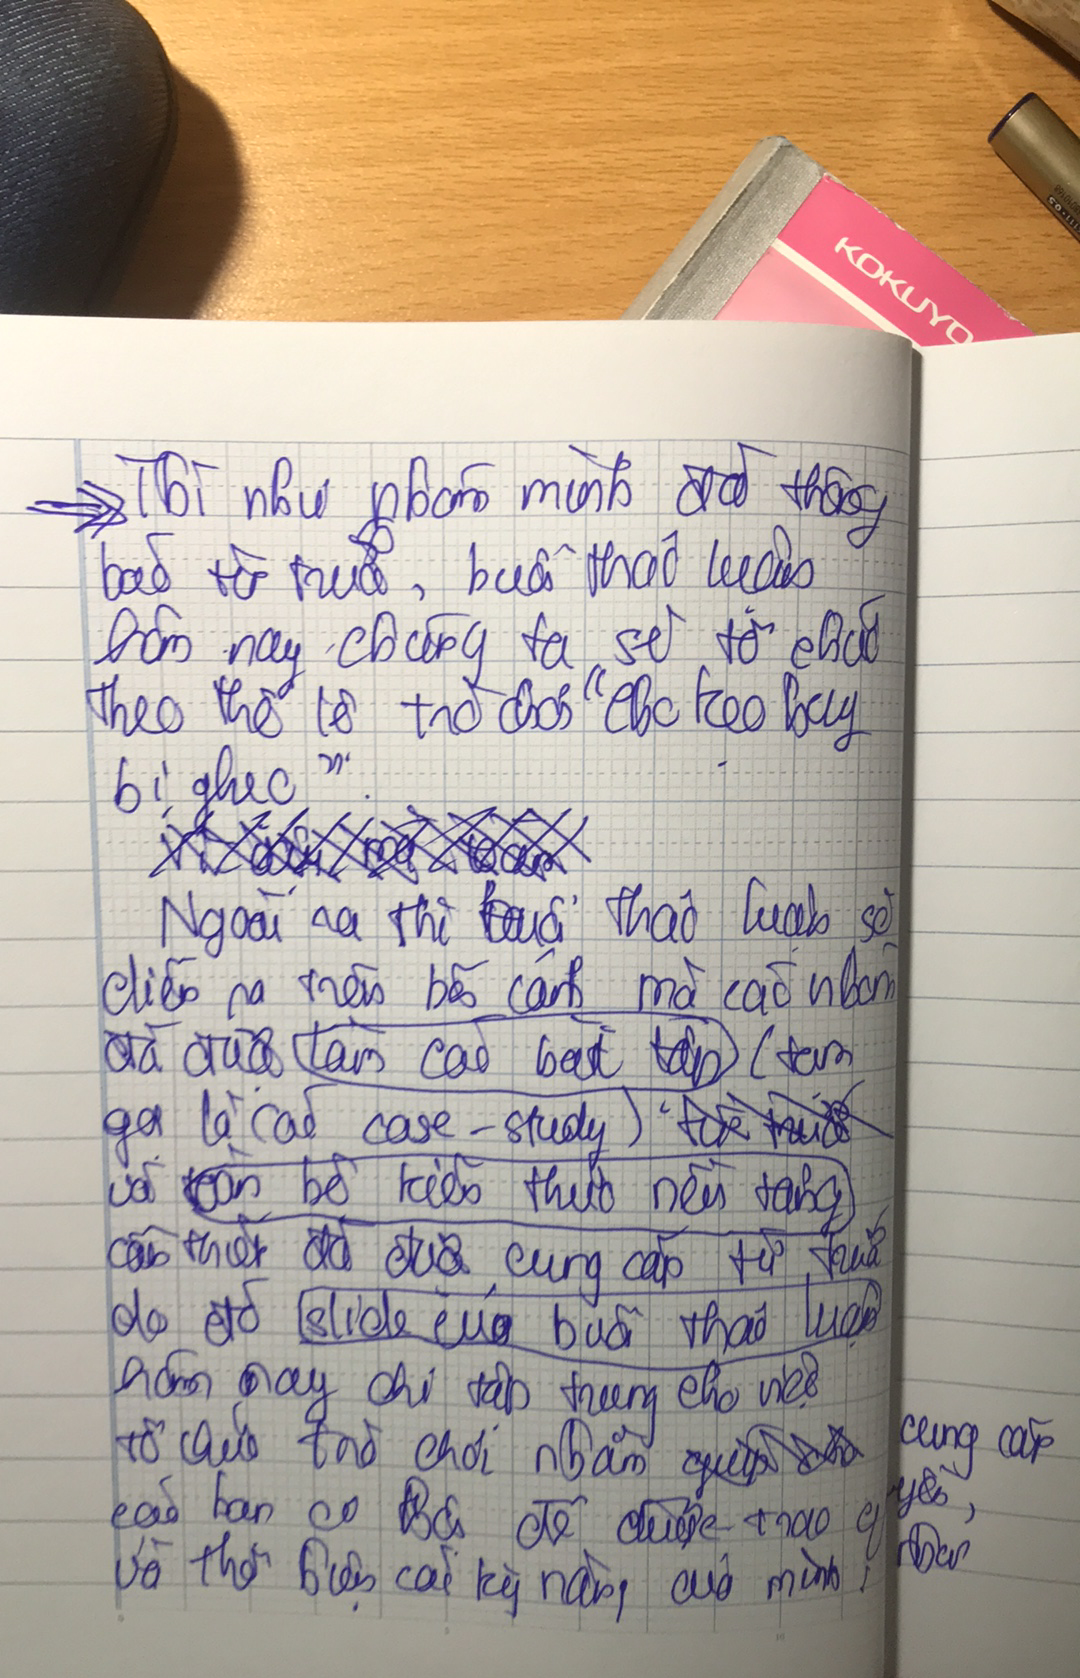 KOKUYO
⇒ Thì như nhóm mình đã thông
báo từ trước, buổi thảo luận
hôm nay chúng ta sẽ tổ chức
theo thể lệ trò chơi "Chọc kẹo hay
bị ghẹo".
Ngoài ra thì buổi thảo luận sẽ
diễn ra trên bối cảnh mà các nhóm
đã được làm các bài tập (tạm
gọi là các case-study)
và toàn bộ kiến thức nền tảng
cần thiết đã được cung cấp từ trước
do đó slide của buổi thảo luận
hôm nay chỉ tập trung cho việc
tổ chức trò chơi nhằm cung cấp
các bạn cơ hội để được trao q yền,
và thể hiện các kỹ năng của mình,